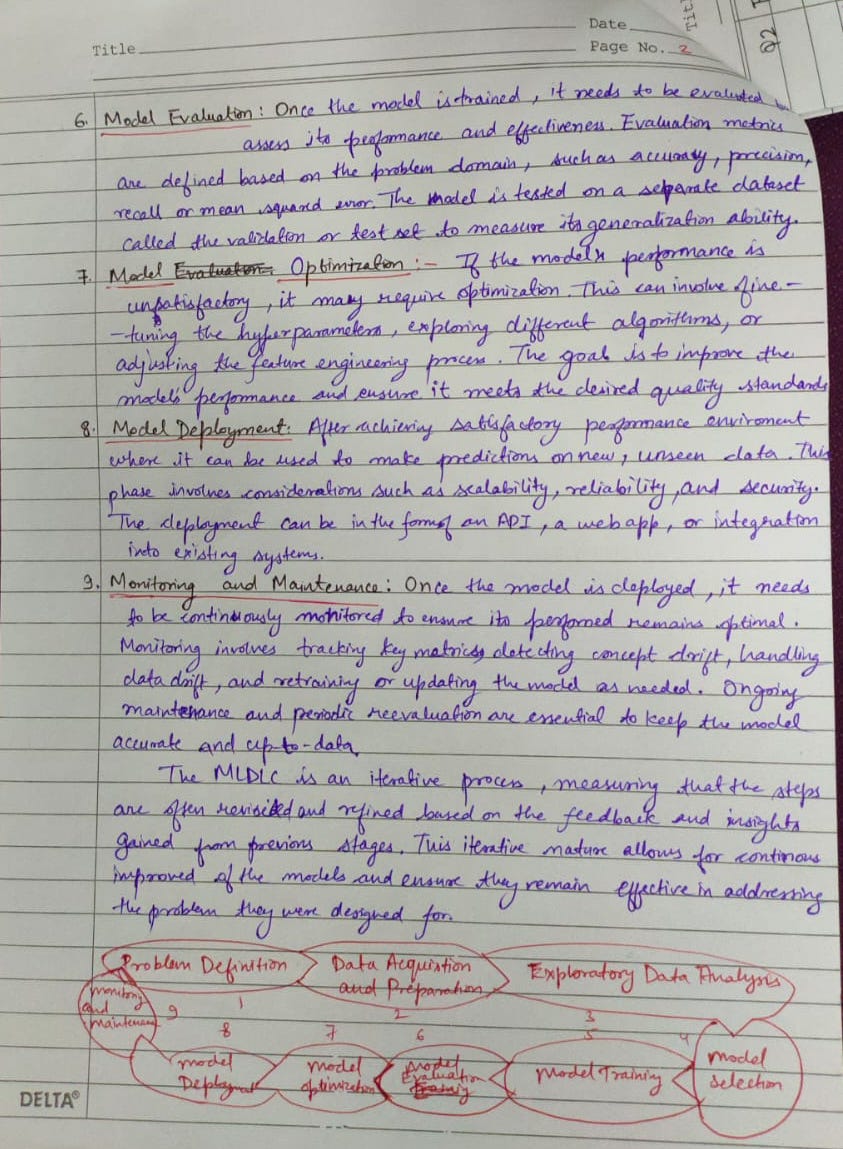 Title
Date
Page No. 2
Tit
Q2
6. Model Evaluation : Once the model is trained , it needs to be evaluated
assess its performance and effectiveness. Evaluation metrics
are defined based on the problem domain, such as accuracy, precision,
recall or mean squared error. The model is tested on a separate dataset
called the validation or test set to measure its generalization ability.
7. Model Evaluation: Optimization :- If the model's performance is
unsatisfactory , it may require optimization. This can involve fine -
-tuning the hyperparameters, exploring different algorithms, or
adjusting the feature engineering process. The goal is to improve the
model's performance and ensure it meets the desired quality standards
8. Model Deployment: After achieving satisfactory performance enviroment
where it can be used to make predictions on new, unseen data. This
phase involves considerations such as scalability, reliability, and security.
The deployment can be in the form of an API , a web app, or integration
into existing systems.
9. Monitoring and Maintenance : Once the model is deployed, it needs
to be continuously monitored to ensure its performed remains optimal.
Monitoring involves tracking key metrics, detecting concept drift, handling
data drift, and retraining or updating the model as needed. Ongoing
maintenance and periodic reevaluation are essential to keep the model
accurate and up-to-data.
The MLDLC is an iterative process , measuring that the steps
are often revisited and refined based on the feedback and insights
gained from previous stages. This iterative nature allows for continous
improved of the models and ensure they remain effective in addressing
the problem they were designed for.
Problem Definition
Data Acquistion
Exploratory Data Analysis
and Preparation
monitoring
and
maintenance
9
1
2
3
8
7
6
5
4
model
Deployment
model
optimization
model
Evaluation
Model Training
model
selection
DELTA®